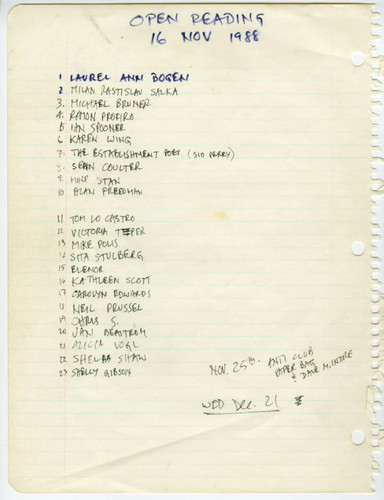 OPEN READING
16 NOV 1988
1 LAUREL ANN BOGEN
2 MILAN RASTISLAV SALKA
3. MICHAEL BRUNER
4. RAMON
5 IAN SPOONER
6 KAREN WING
7 THE ESTABLISHMENT POET (SID PERRY)
8 SEAN COULTER
9 MIKE STAN
10 ALAN FREEDMAN
11 TOM LO CASTRO
12 VICTORIA
13 MIKE POLIS
14 SITA STULBERG
15 ELENOR
16 KATHLEEN SCOTT
17 CAROLYN EDWARDS
18 NEIL PRUSSEL
19 CHRIS S.
20 JAN
21 ALICIA VOGL
22 SHELBA SHAW
23 SHELLY GIBSON
NOV. 25th. ANTI CLUB
PAPER BAG
& DAVE McINTIRE
WED DEC. 21